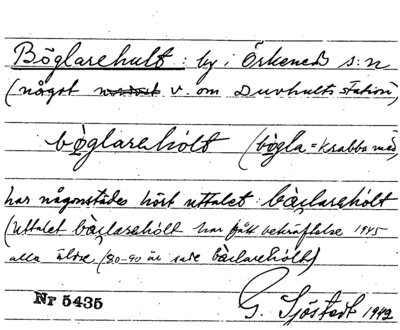 Böglarehult : by i Örkeneds s:n
(något v. om Duvhults station)
bøglarehólt (bògla = krabba med
har någonstädes hört uttalet bàclarehólt
(Uttalet bàclarehólt har fått bekräftelse 1945
alla äldre (80-90 år sade bàclarehólt)
Nr 5435
G. Sjöstedt 1942